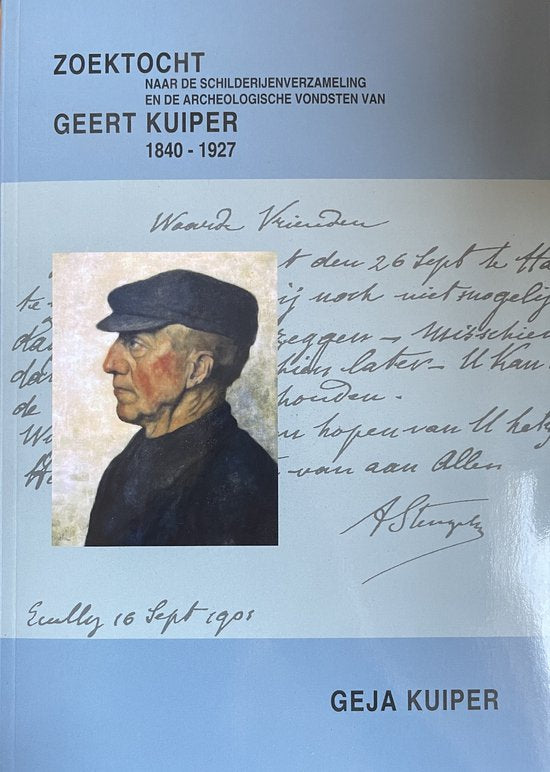 ZOEKTOCHT
NAAR DE SCHILDERIJENVERZAMELING
EN DE ARCHEOLOGISCHE VONDSTEN VAN
GEERT KUIPER
1840 - 1927
Waarde Vrienden
t den 26 Sept te Ha
te ij noch niet mogelij
da zeggen - Misschien
dan hien later - U kan
de houden.
n hopen van U het
van aan Allen
Ecully 16 Sept 1901
GEJA KUIPER